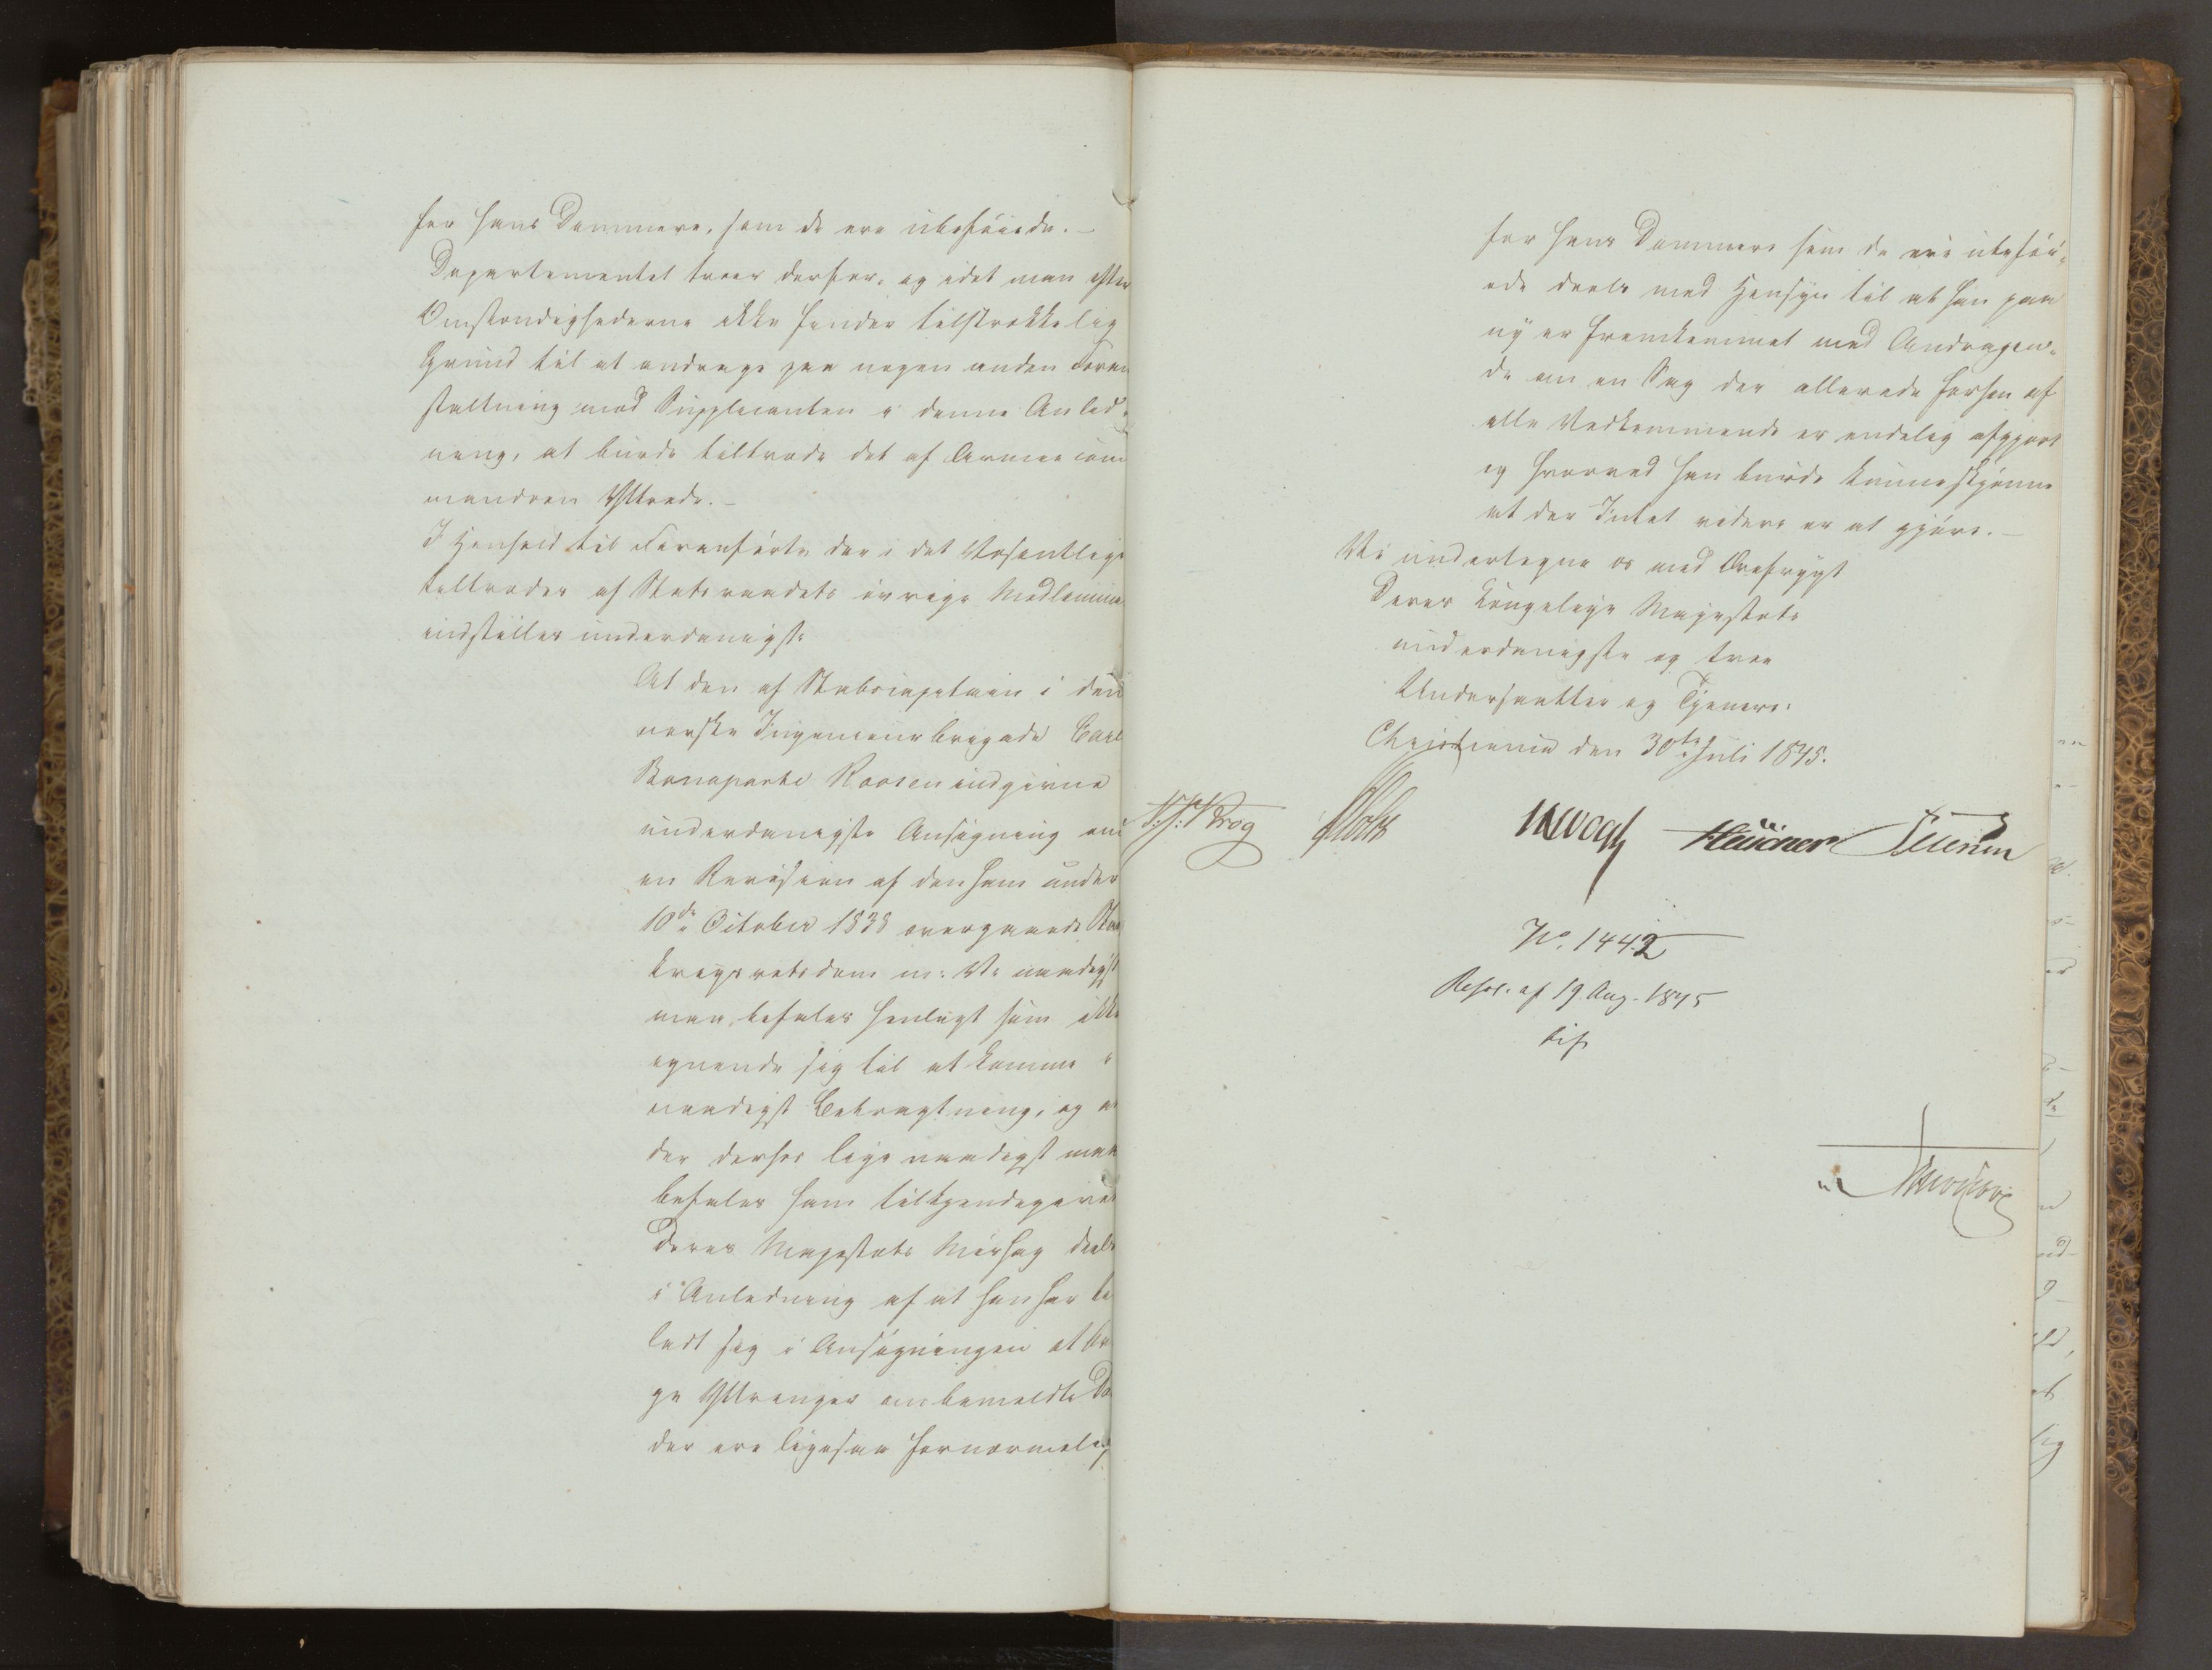 for hans Dommere, som de ere ubeföiede.-
Departementet troer derfor, og idet man efter
Omstændighederne ikke finder tilstrækkelig
Grund til at andrage paa nogen anden Foran
staltning mod Supplicanten i denne Anled-
ning, at burde tiltræde det af Armeecom
mandoen Yttrede.-
I Henhold til Foranførte der i det Væsentlige
tiltrædes af Statsraadets øvrige Medlemmer
indstilles underdanigst:
At den af Stabscapitain i den
norske Ingenieurbrigade Carl
Bonaparte Roosen indgivne
underdanigste Ansøgning om
en Revision af den ham under
10de October 1838 overgaaede
Krigsretsdom m: V: naadigst
maa befales henlagt som ikke
egnende sig til at komme i
naadigst Betragtning, og at
der derhos lige naadigst maa
befales ham tilkjendegivet
Deres Majestæts Mishag deels
i Anledning af at han har til
ladt sig i Ansøgningen at bru
ge Yttringer om bemeldte Dom
der ere ligesaa fornærmelige
for hans Dommere som de ere ubeföi-
ede deels med Hensyn til at han paa
ny er fremkommet med Andragen-
de om en Sag der allerede forhen af
alle Vedkommende er endelig afgjort
og hvorved han burde kunne skjønne
at der Intet videre er at gjøre.-
Vi undertegne os med Ærefrygt
Deres Kongelige Majestæts
underdanigste og troe
Undersaatter og Tjenere.
Christiania den 30te Juli 1845.
Krog Holst Vogt
No. 1442
Resol. af 19 Aug. 1845